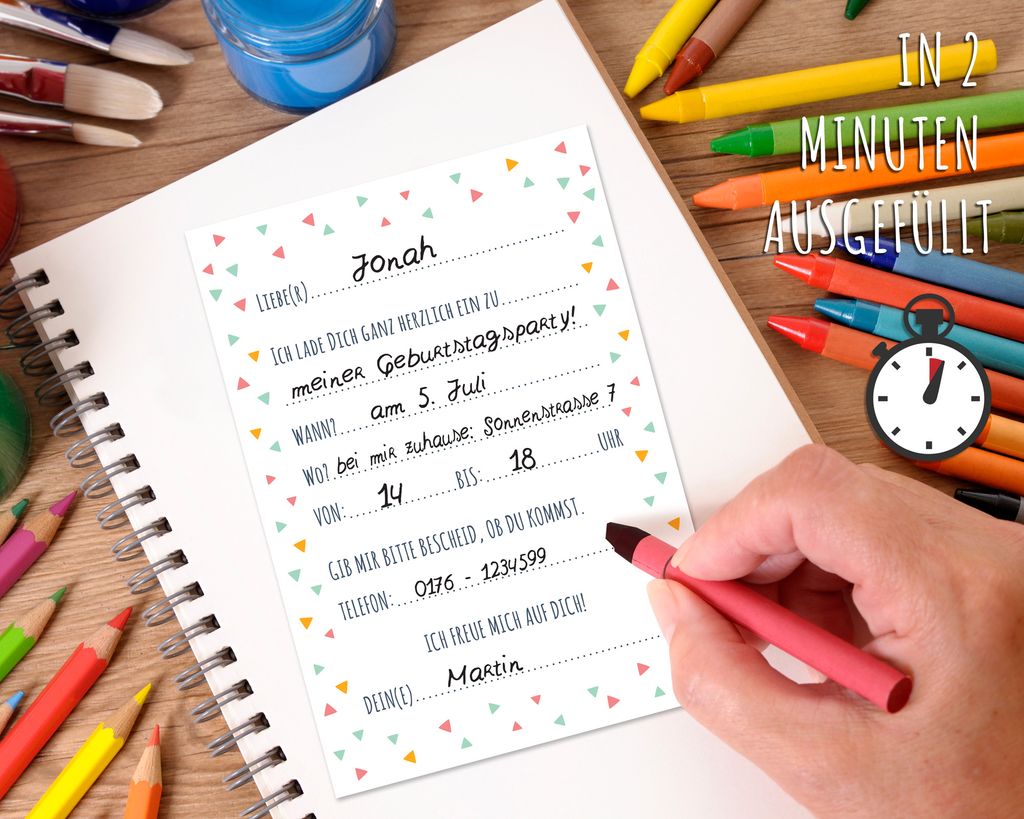 IN 2
MINUTEN
AUSGEFÜLLT
LIEBE(R)..... Jonah
ICH LADE DICH GANZ HERZLICH EIN ZU.....
meiner Geburtstagsparty!
WANN? am 5. Juli
WO? bei mir zuhause: Sonnenstrasse 7
VON: 14 BIS: 18 UHR
GIB MIR BITTE BESCHEID, OB DU KOMMST.
TELEFON: 0176 - 1234599
ICH FREUE MICH AUF DICH!
DEIN(E) Martin